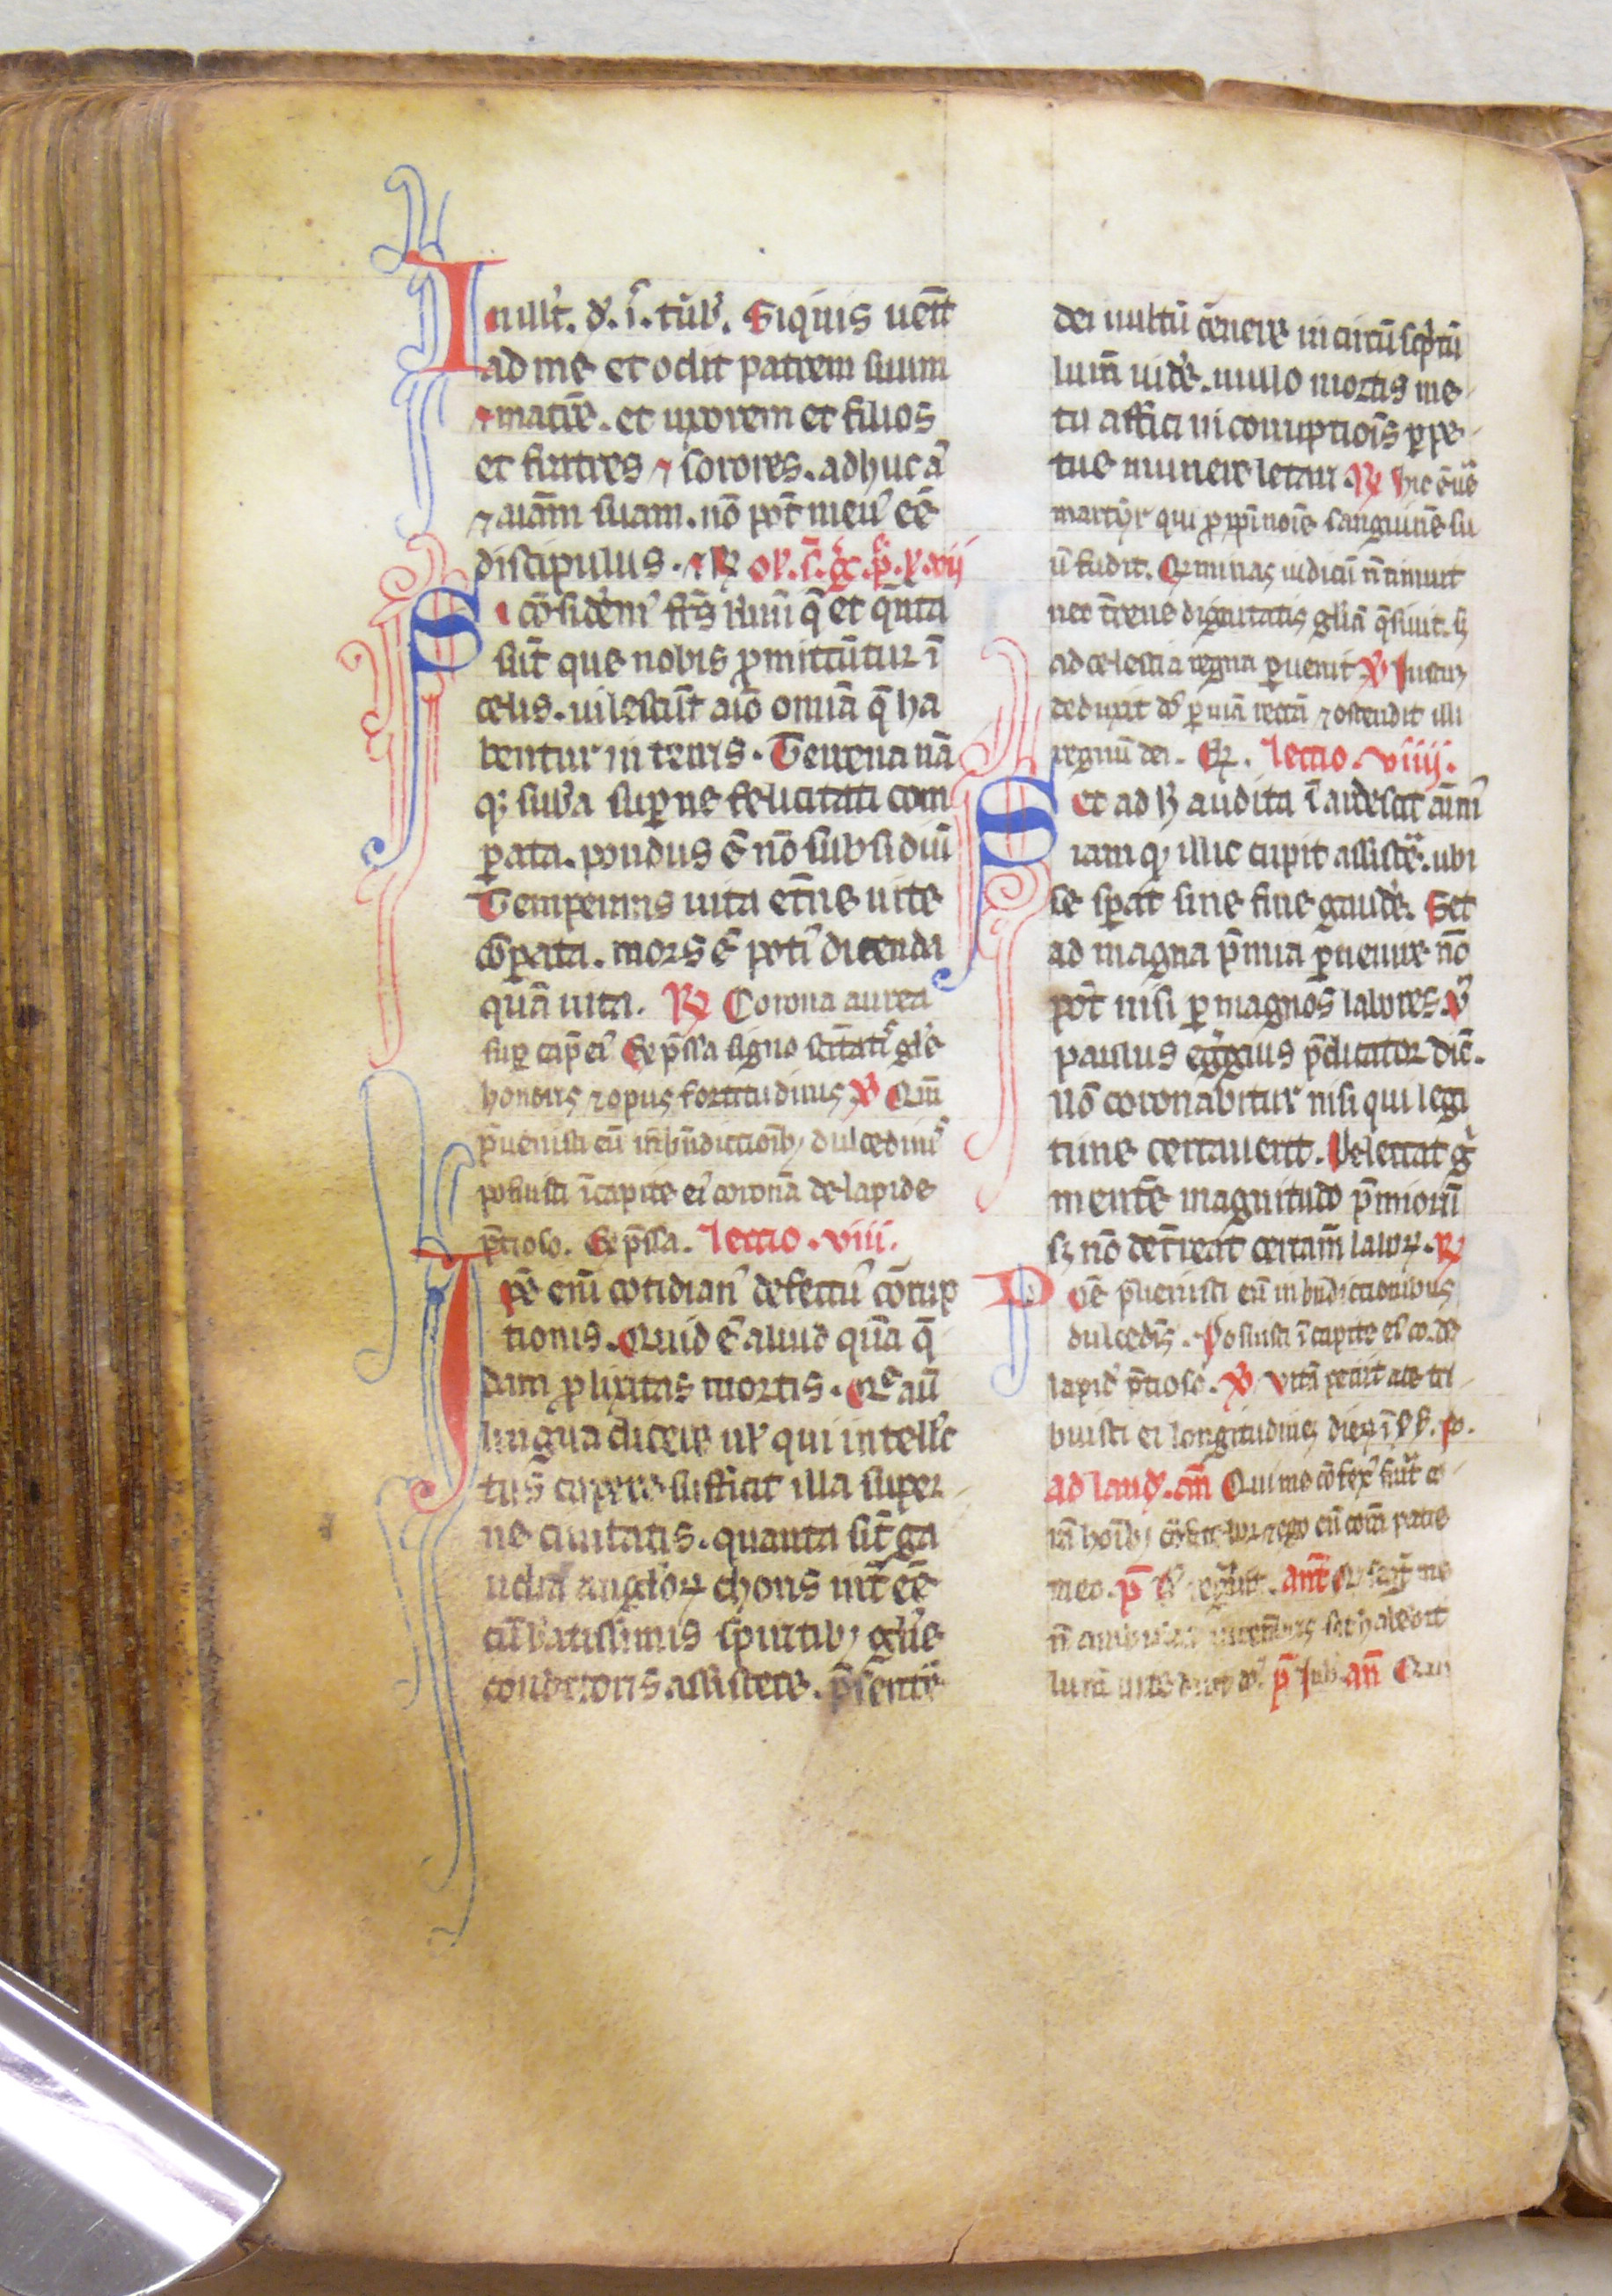 In illt. d. i. turb. Siquis uenit
ad me et odit patrem suum
⁊ matrē. et uxorem et filios
et fratres ⁊ sorores. adhuc a͛
⁊ aīam suam. nō pōt meꝰ eē
discipulus. ⁊ R̶
Si cōsidem͛ frs̄ kmī q̄ et q̄nta
sūt que nobis ꝓmittūtur ī
celis. uilescūt aīo omīa q̄ ha
bentur in terris. Terrena nā
qꝫ suba suꝑne felicitati com
ꝑata. pondus ē nō subsidiū
Temporalis uita etn̄e uite
cōꝑata. mors ē potiꝰ dicenda
quā uita. ℟ Corona aurea
suꝑ cap̄ eiꝰ Exp̄ssa signo scītatꝭ gl͛e
honoris ⁊ opus fortitudinis ℣ Qm̄
p̄uenisti eū in bn̄dictiōibꝫ dulcedinꝭ
posuisti ī capite eiꝰ coronā de lapide
p̄tioso. Exp̄ssa. Lectio. viii.
Ipse enī cotidianꝰ defectꝰ corrup
tionis. Quid ē aliud quā q̄
dam ꝓlixitas mortis. Qe aū
lingua dicere ul̄ qui intellc̄
tus capere sufficit illa super
ne ciuitatis. quanta sīt ga
udia angeloꝝ choris int̄ eē
cū batissimis spiritibꝫ glīe
conditoris assistere. p̄sentē
dei uultū cernere incircūscptū
lumn̄ uidē. nullo mortis me
tu affici incorruptiōis ꝑpe
tue munere letari. ℟ Hic ē ue͛
martyr qui ꝓ xp̄i noīe sanguinē su
ū fudit. Qui minas iudicū n̄ timuit
nec t̄rene dignitatis glīā q̄siuit. sꝫ
ad celestia regna ꝑuenit ℣ Iustū
deduxit dn̄s ꝑ uiā rectā ⁊ ostendit illi
regnū dei. Qi. Lectio. viiii.
Set ad h̄ audita īardescit anim͛
iamqꝫ illic cupit assistē͛. ubi
se sꝑat sine fine gaudē͛. Set
ad magna p̄mia ꝑuenire nō
pōt nisi ꝑ magnos labores. Ū
paulus egͣgius p̄dicator dic̄.
nō coronabitur nisi qui legi
time certauerit. Delectat gͦ
mentē magnitudo p̄mioꝝ
sꝫ nō deterreat certam̄ laboꝝ. ℟
Dn̄e p̄uenisti eū in bn̄dictionibus
dulcedīs. Posuisti ī capite eiꝰ co. de
lapid͛ p̄tioso. ℣ Vitā petiit a te tri
buisti ei longitudinē dieꝝ ī s̄ s̄. Po.
ad laud͛. an̄ Qui me cōfexꝰ fuit͛ co
rā hoībꝫ cōfitebor ⁊ ego eū corā patre
meo. p̄ Dn̄s regͣuit. an̄t Qui seqͥt͛ me
n̄ ambulat in tenebris set habebit
lumē uite dicit dn̄s. p̄ Iub. an̄ Qui